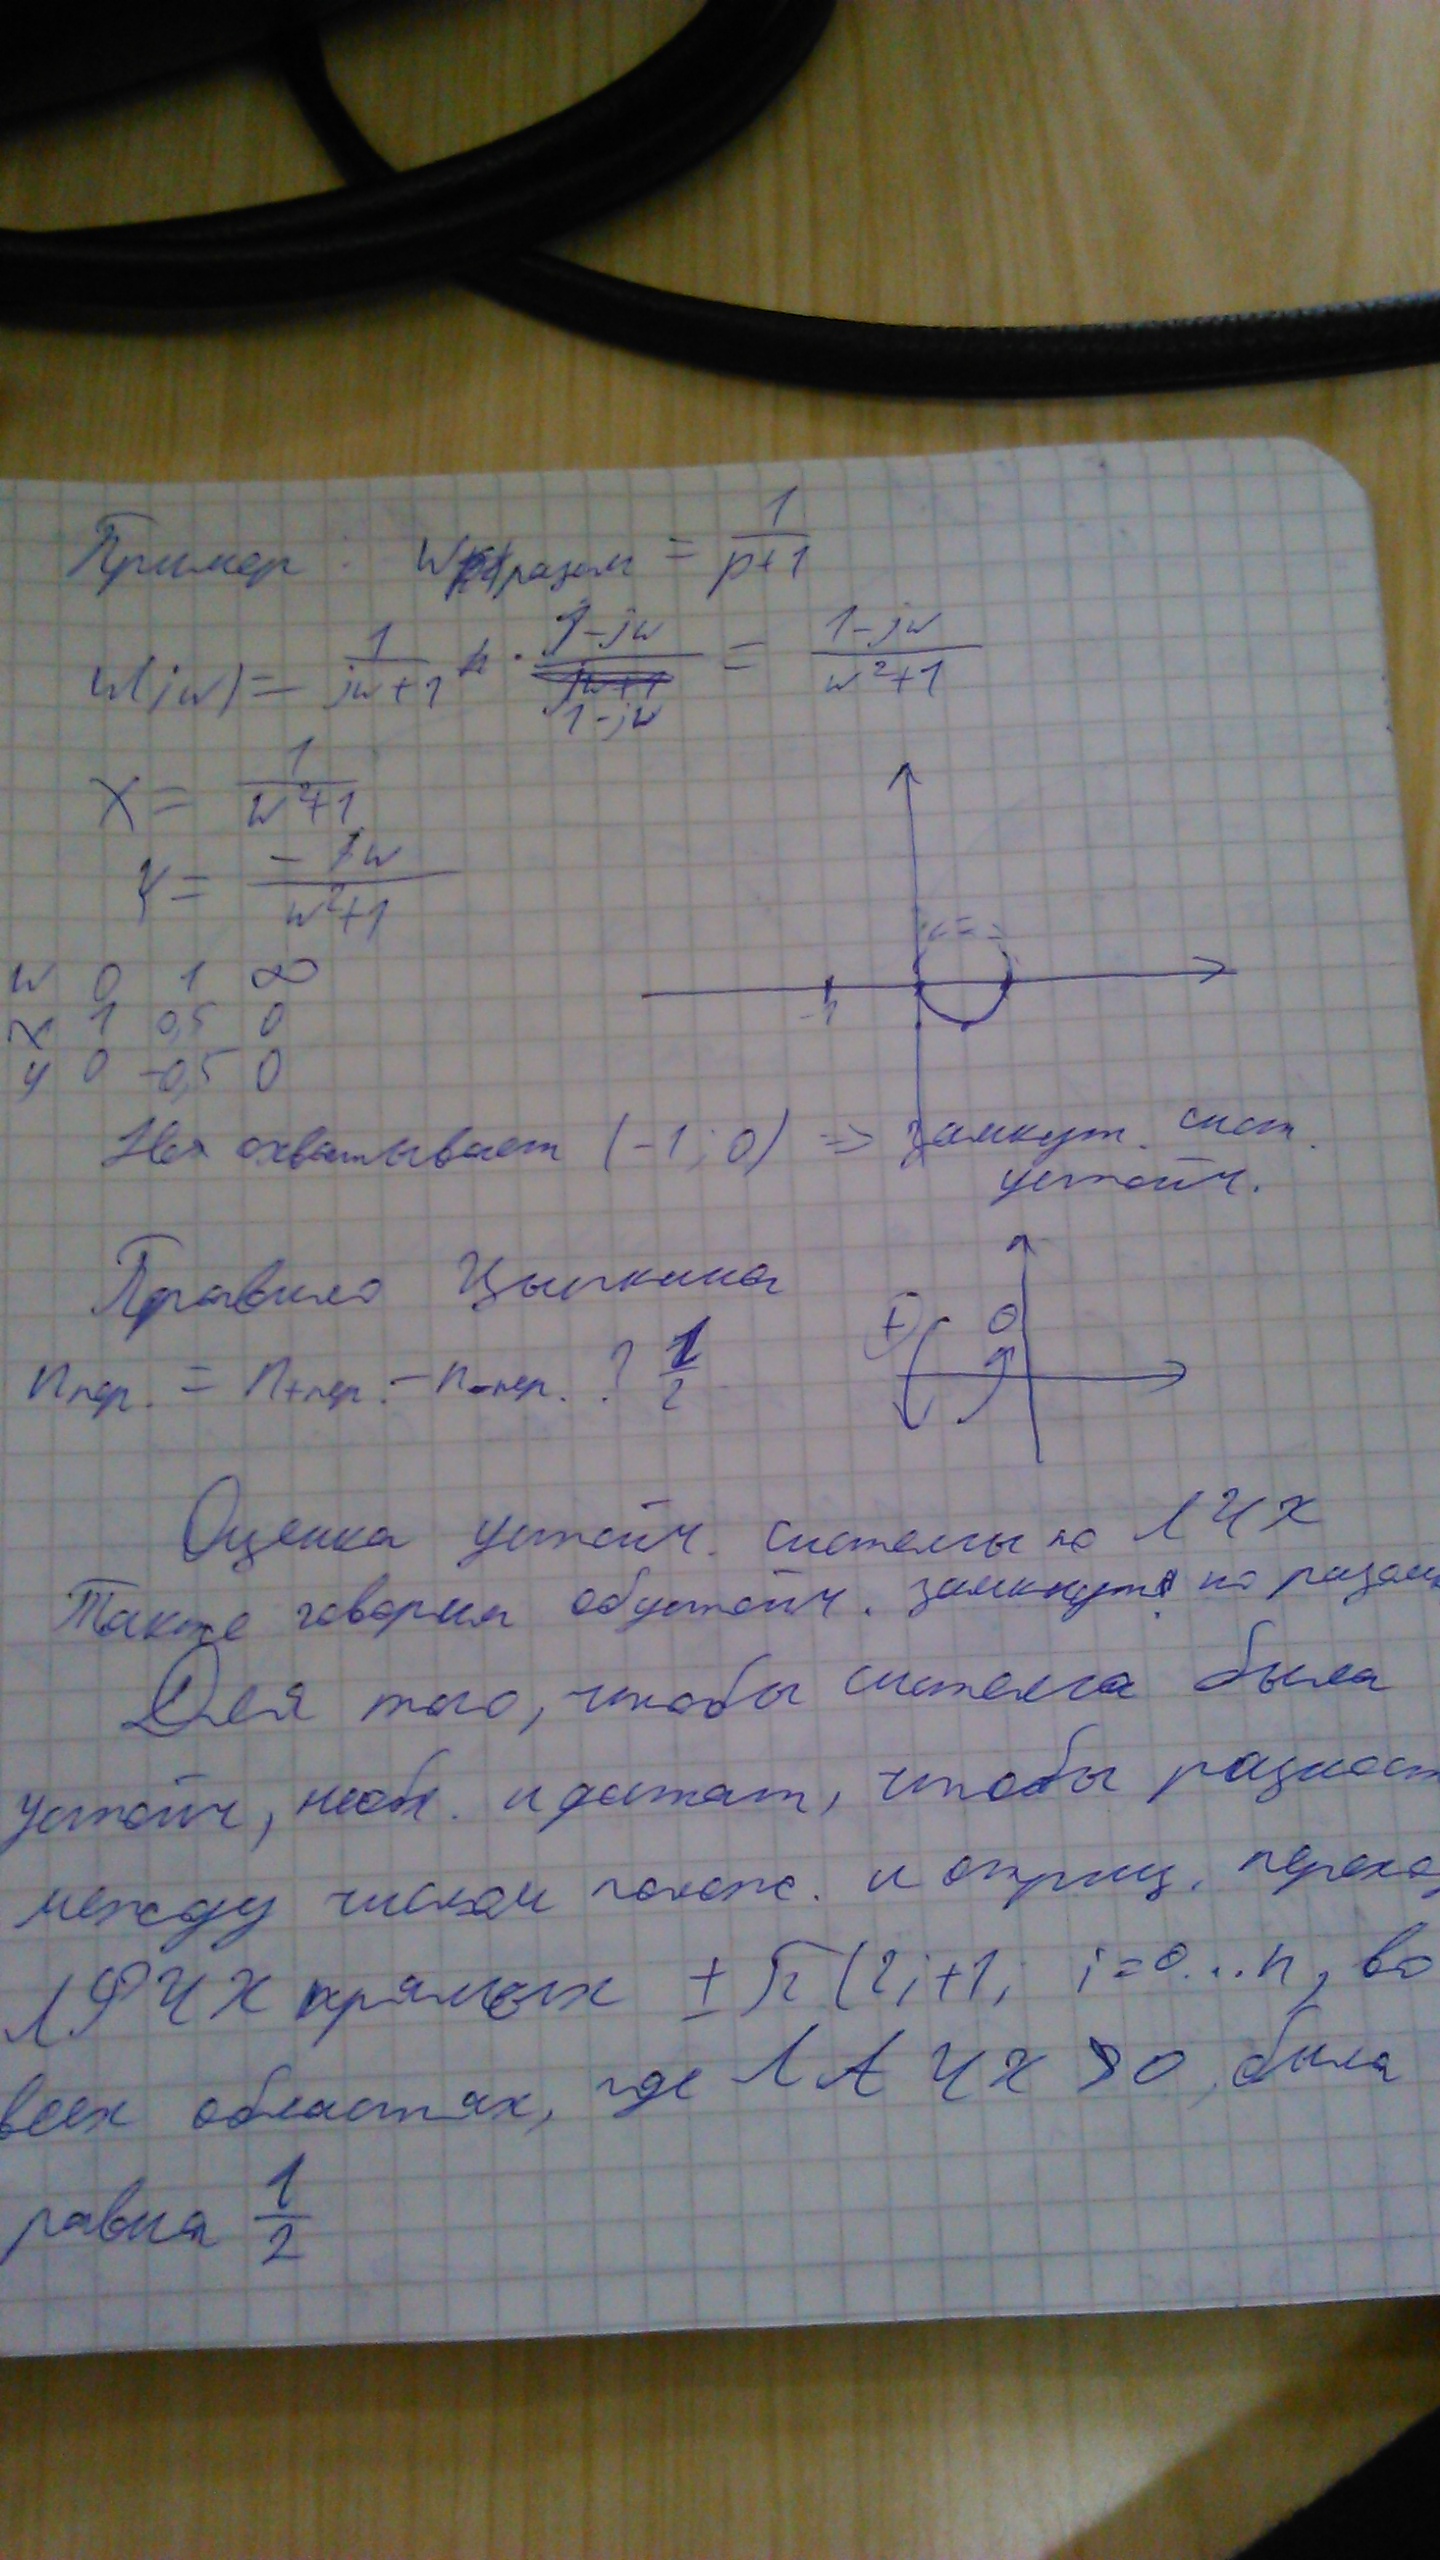 Пример: W разом = 1/(p+1)
W(jw) = 1/(jw+1) · (1-jw)/(1-jw) = (1-jw)/(w²+1)
X = 1/(w²+1)
Y = -w/(w²+1)
-1
w 0 1 ∞
x 1 0,5 0
y 0 -0,5 0
Не охватывает (-1; 0) => замкнут. сист.
устойч.
Правило Цыпкина
+
n пер. = n+пер. - n-пер. ? 1/2
Оценка устойч. системы по ЛЧХ
Также говорим об устойч. замкнут. по разом
Для того, чтобы система была
устойч, необх. и достат, чтобы разност
между числом полож. и отриц. перехо
ЛФЧХ прямых ± π(2i+1, i=0...n, во
всех областях, где ЛАЧХ >0, была
равна 1/2